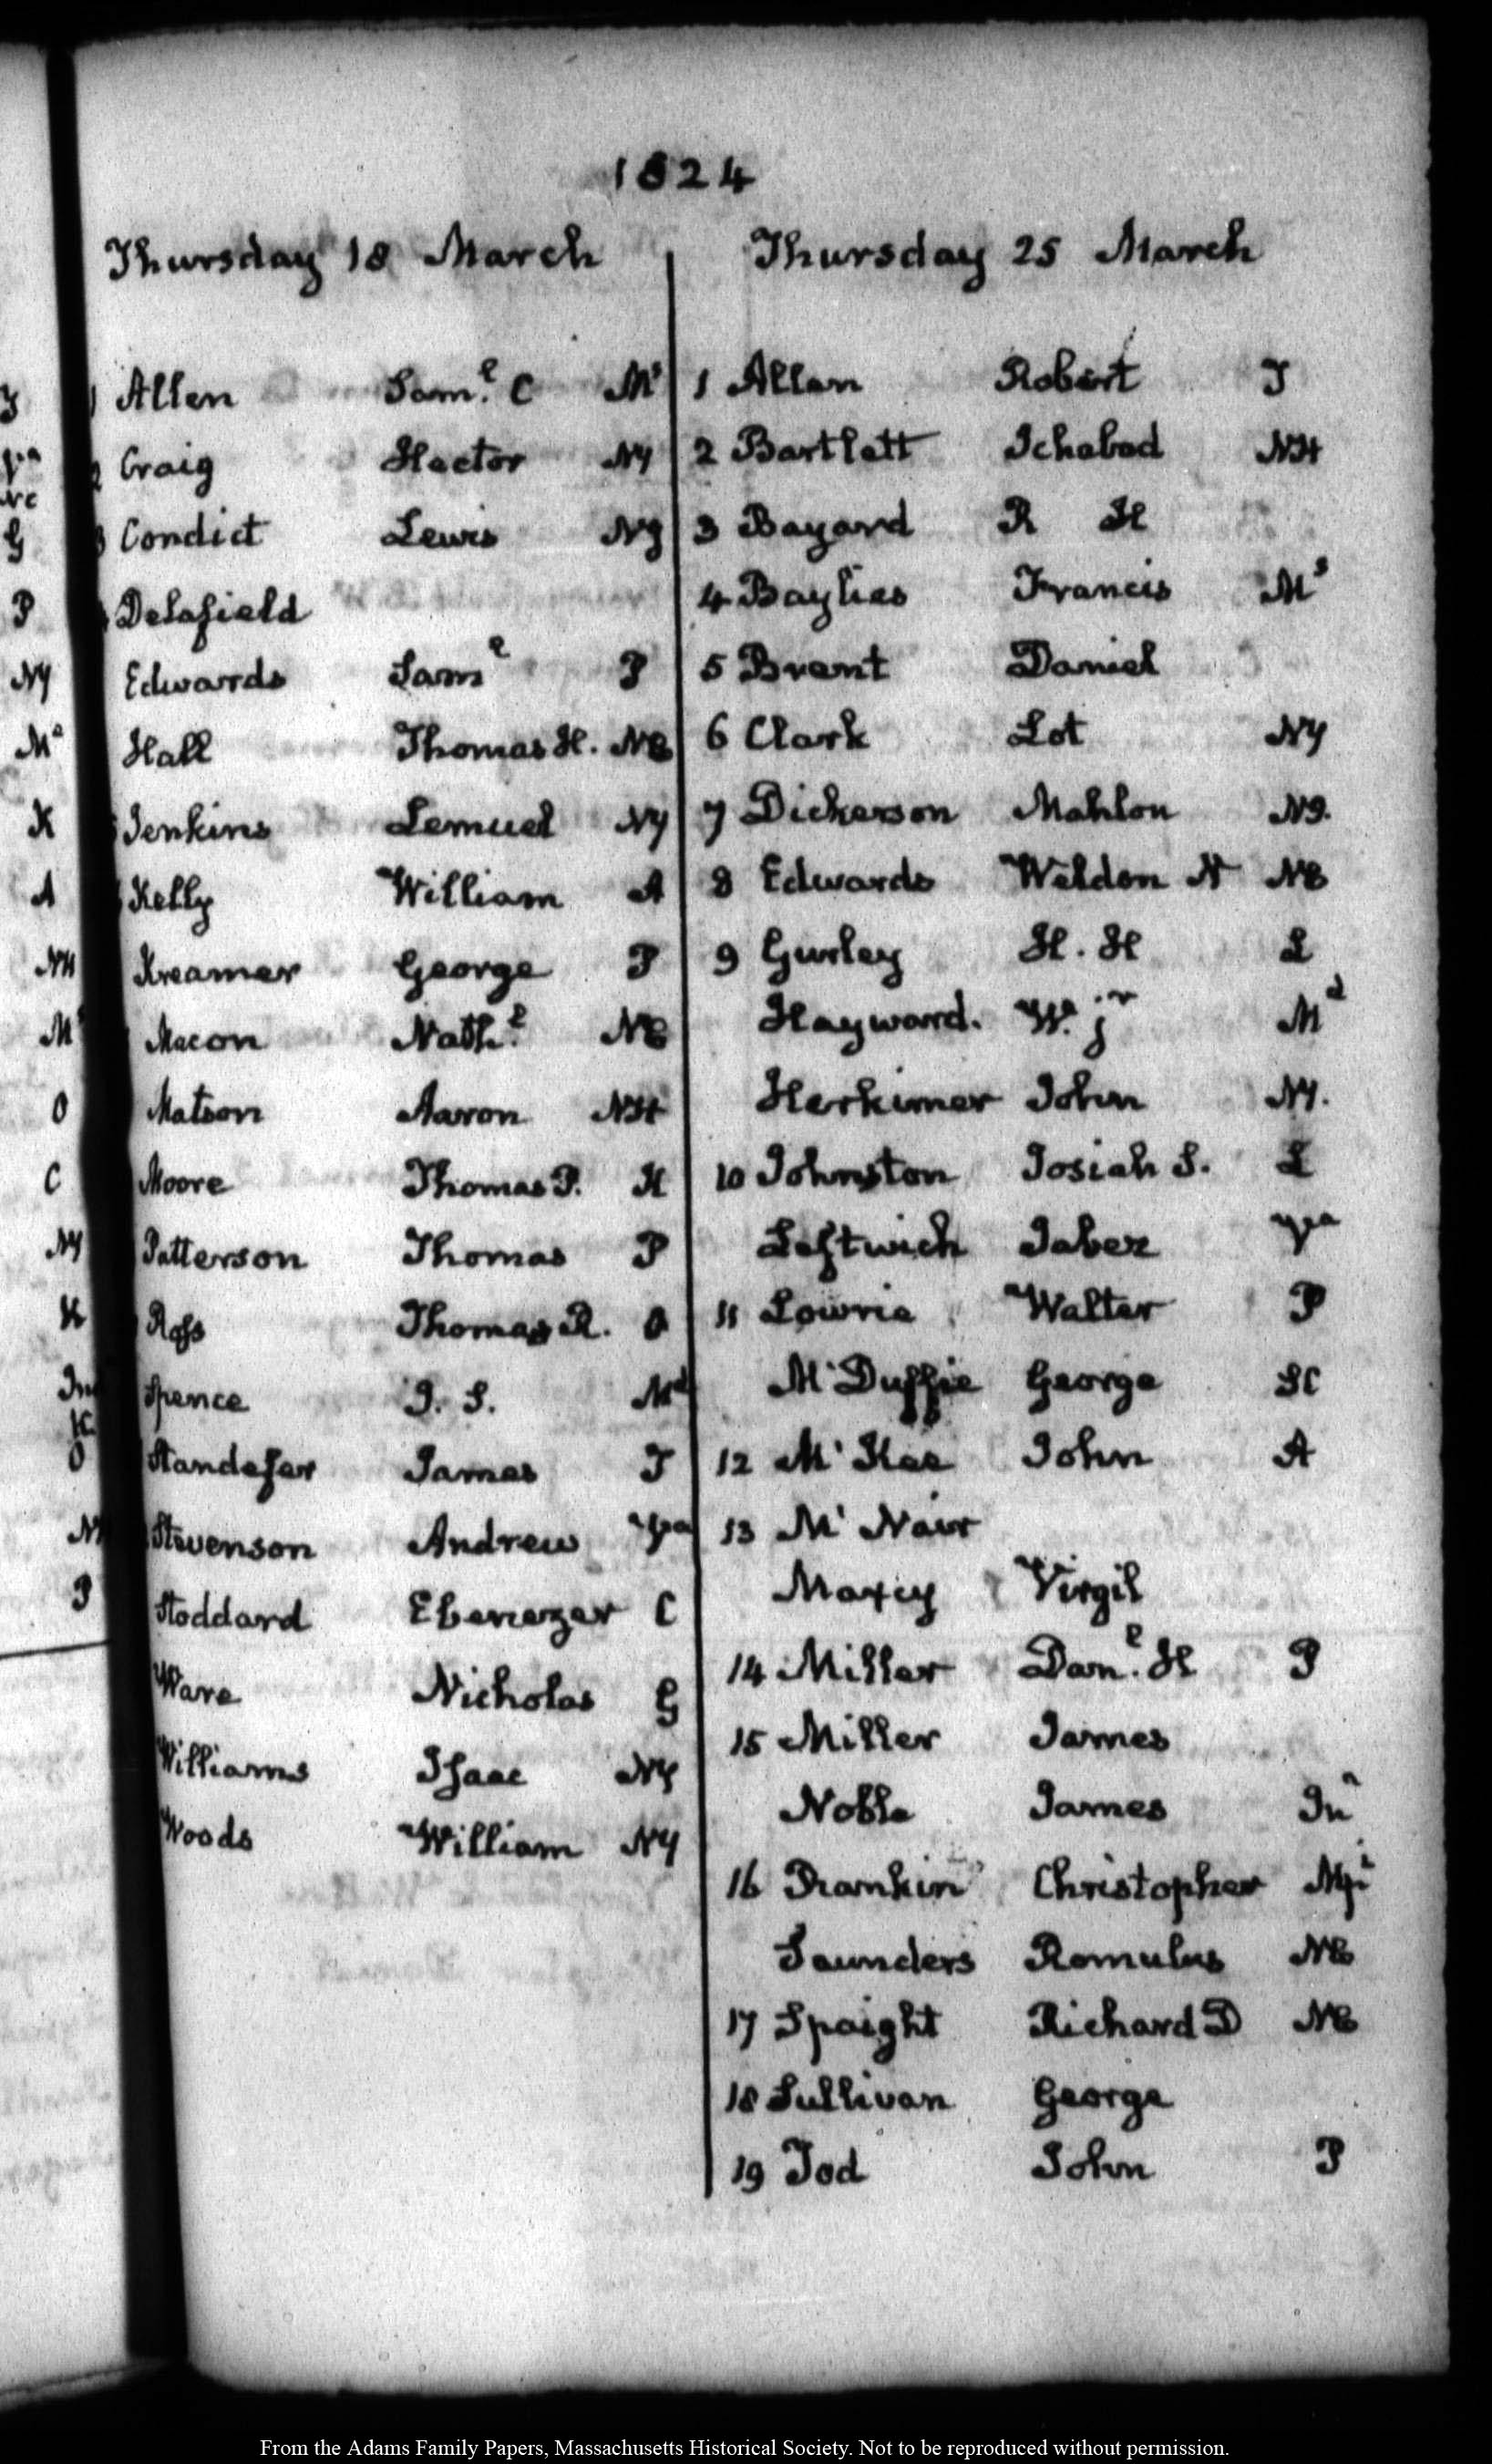 1824
Thursday 18 March
1 Allen Sam.l C Ms
2 Craig Hector NY
3 Condict Lewis NJ
Delafield
Edwards Saml P
Hall Thomas H. NC
Jenkins Lemuel NY
Kelly William A
Kreamer George P
Macon Nath.l NC
Matson Aaron NH
Moore Thomas P. K
Patterson Thomas P
Ross Thomas R. O
Spence J. S. Md
Standefer James T
Stevenson Andrew Va
Stoddard Ebenezer C
Ware Nicholas G
Williams Isaac NY
Woods William NY
Thursday 25 March
1 Allen Robert T
2 Bartlett Ichabod NH
3 Bayard R H
4 Baylies Francis Ms
5 Brent Daniel
6 Clark Lot NY
7 Dickerson Mahlon NJ.
8 Edwards Weldon N NC
9 Gurley H. H L
Hayward. W. jr Md
Herkimer John NY.
10 Johnston Josiah S. L
Leftwich Jabez Va
11 Lowrie Walter P
M'Duffie George SC
12 M'Kee John A
13 M'Nair
Maxcy Virgil
14 Miller Dan.l H P
15 Miller James
Noble James In
16 Rankin Christopher Mpi
Saunders Romulus NC
17 Spaight Richard D NC
18 Sullivan George
19 Tod John P
From the Adams Family Papers, Massachusetts Historical Society. Not to be reproduced without permission.